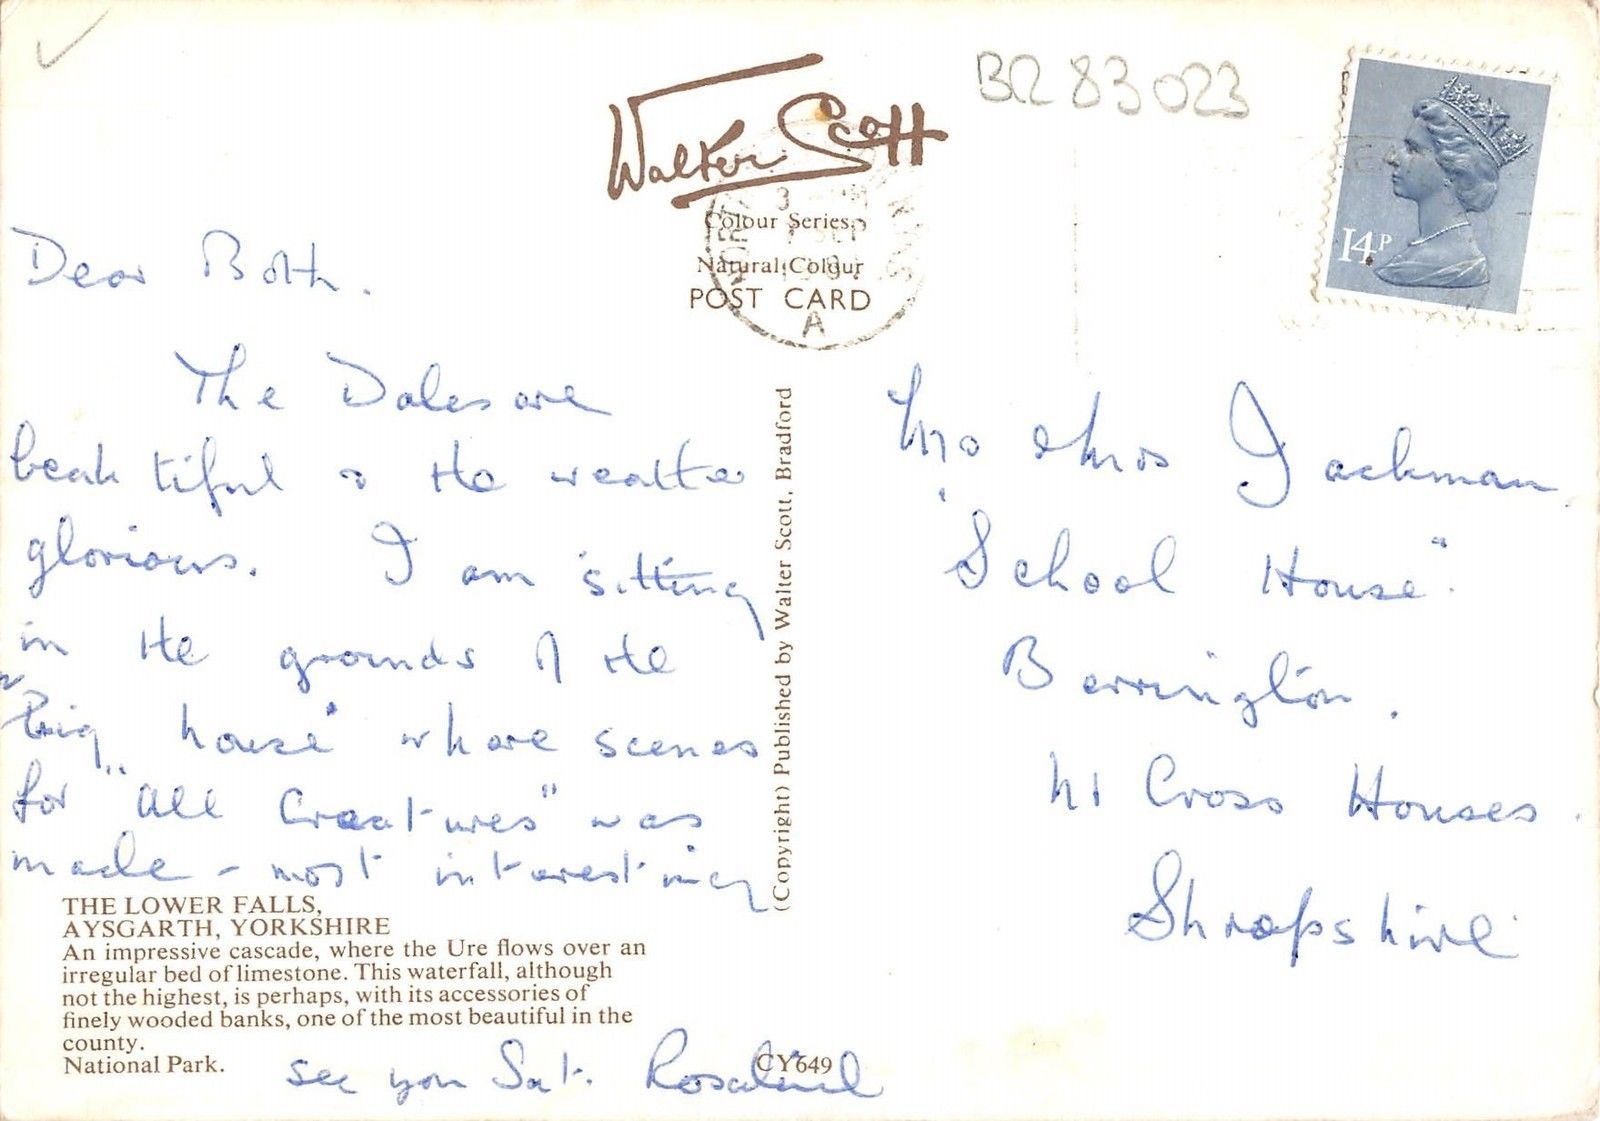 BR 83023
Walter Scott
Colour Series
Natural Colour
POST CARD
A
14P
Dear Both.
The Dales are
beautiful & the weather
glorious. I am sitting
in the grounds of the
"big house" where scenes
for "All Creatures" was
made - most interesting
THE LOWER FALLS,
AYSGARTH, YORKSHIRE
An impressive cascade, where the Ure flows over an
irregular bed of limestone. This waterfall, although
not the highest, is perhaps, with its accessories of
finely wooded banks, one of the most beautiful in the
county.
National Park.
see you Sat. Rosalind
CY649
(Copyright) Published by Walter Scott, Bradford
Mr & Mrs Jackman
"School House".
Berrington.
Nr Cross Houses.
Shropshire